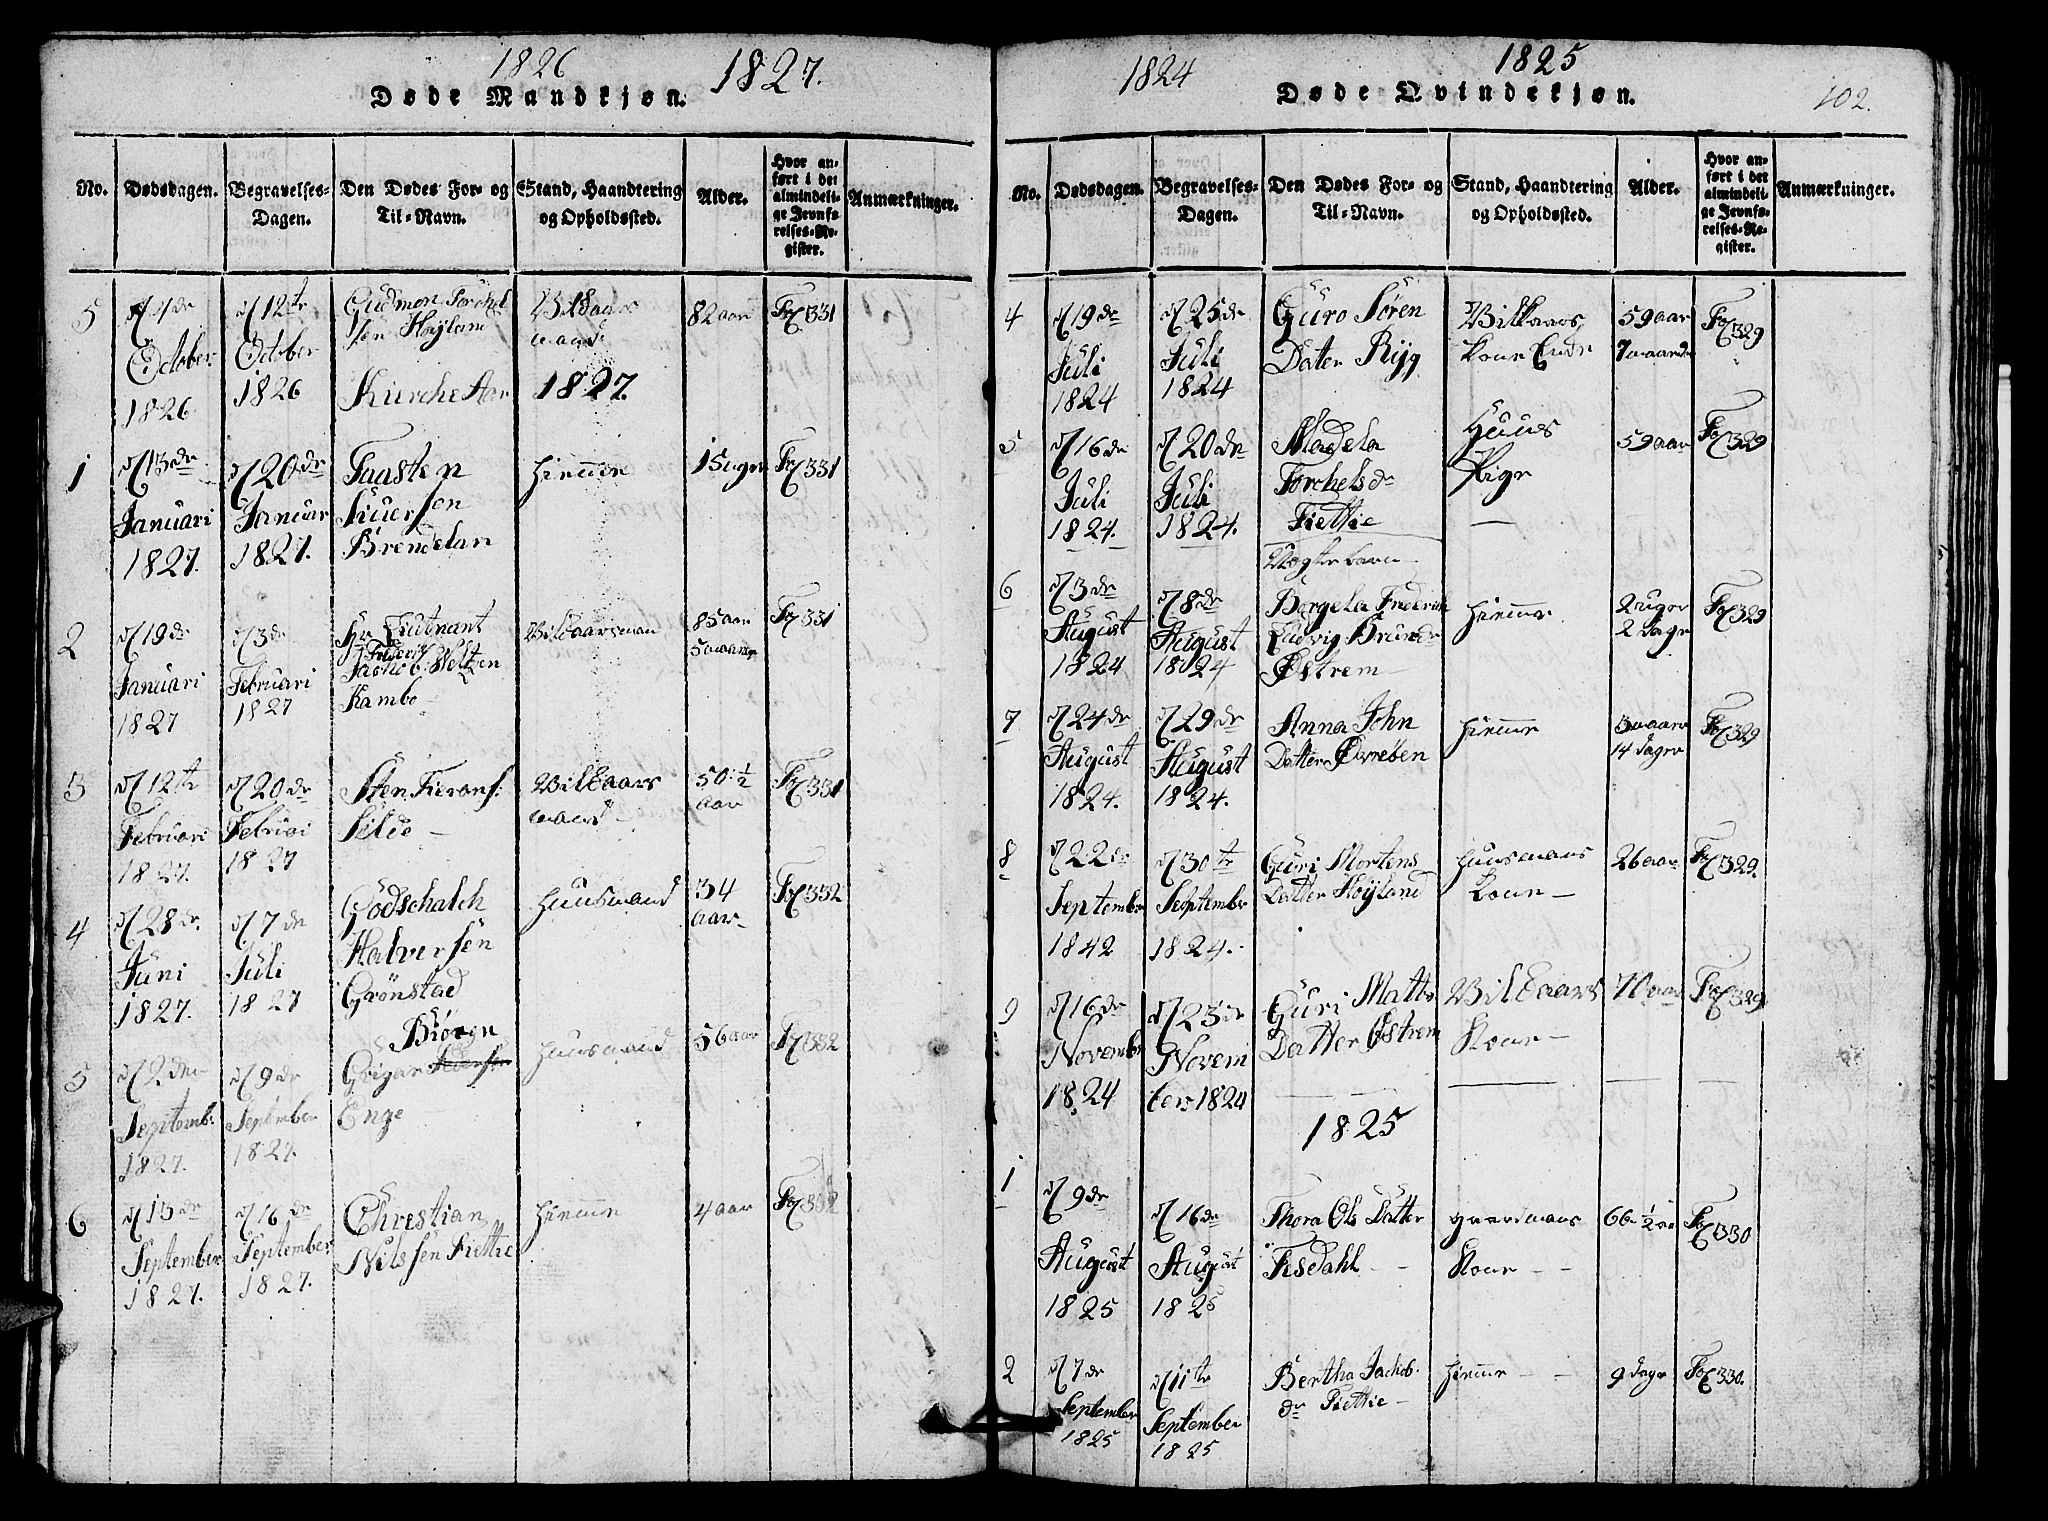 1826
1827.
Døde Mandkjøn.
No.
Dødsdagen.
Begravelses-
Dagen.
Den Dødes For- og
Til-Navn.
Stand, Haandtering
og Opholdssted.
Alder.
Hvor an-
ført i det
almindeli-
ge Jevnfø-
relses-Re-
gister.
Anmærkninger.
5
October
1826
12te
October
1826
Gudmon Torchel
søn Høyland
mand
82 aar
331
Kirche Aar 1827.
1
13de
Januari
1827.
20de
Januar
1827.
Taasten
Siversen
Brendelan
hiemme
15 uger
331
2
19de
Januari
1827
3de
Februari
1827
Hr. Liutnant
Jachob Welken
Rambo
Vilkaarsman
85 aar
331
3
12te
Februari
1827.
20de
Februari
1827
Sten
Silde
Vilkaars
mand
50 1/2
aar
331
4
28de
Juni
1827.
7de
Juli
1827
Godschalch
Halversen
Grönstad
huusmand
34
aar
332
5
2den
Septemb.
1827.
9de
September
1827.
Biörgn
Enge
huusmand
56 aar
332
6
13de
September
1827.
16de
September
1827.
Christian
Nilssen Fiettie
hiemme
4 aar
332
1824
1825
Døde Qvindekjøn.
102.
No.
Dødsdagen.
Begravelses-
Dagen.
Den Dødes For- og
Til-Navn.
Stand, Haandtering
og Opholdssted.
Alder.
Hvor an-
ført i det
almindeli-
ge Jevnfø-
relses-Re-
gister.
Anmærkninger.
4
19de
Juli
1824
25de
Juli
1824
Guro Sören
Dater Ryg
Vilkaars
Kone Ende
59 aar
329
5
16de
Juli
1824.
20de
Juli
1824.
Madela
Torchelsdr
Fiettie
Huus
Pige
59 aar
329
6
3de
August
1824
8de
August
1824
Borgela Fredrik
Ludvig
Østrem
hiemme
2 uger
2 dage
329
7
24de
August
1824.
29de
August
1824.
Anna John
Datter
hiemme
14 dager
329
8
22de
September
1842
30te
September
1824.
Guri Mortens
Datter Høyland
huusmans
Kone
26 aar
329.
9
16de
Novembr
1824
23de
Novem
ber 1824
Guri Matts
Datter Østrem
Vilkaars
Kone
70 aar
329
1825
1
9de
August
1825
16de
August
1825
Thora Ols Datter
Tisdahl
gaardmans
Kone
66 1/2 aar
330
2
7de
September
1825
11te
September
1825
Bertha Jachob.
dr Fiettie
hiemme
9 dage
330.